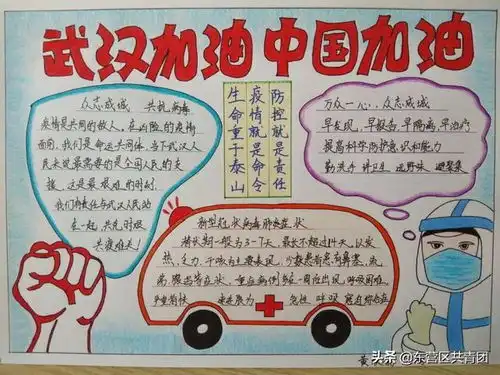 武汉加油 中国加油
众志成城 共抗病毒
疫情是共同的敌人,在凶险的疫情
面前,我们是命运共同体,当下武汉人
民最需要的是全国人民的支
援,这是最艰难的时刻,
我们有责任与武汉人民站
在一起,共克时艰
共渡难关!
防控就是责任
疫情就是命令
生命重于泰山
万众一心,众志成城
早发现,早报告,早隔离,早治疗
提高科学防护意识和能力
勤洗手 讲卫生 远野味 避聚集
新型冠状病毒肺炎症状
潜伏期一般为3-7天,最长不超过14天,以发
热,乏力,干咳为主要表现,少数患者有鼻塞,流
涕,腹泻等症状,重症病例多在一周后出现,呼吸困难,
头条@东营区共青团